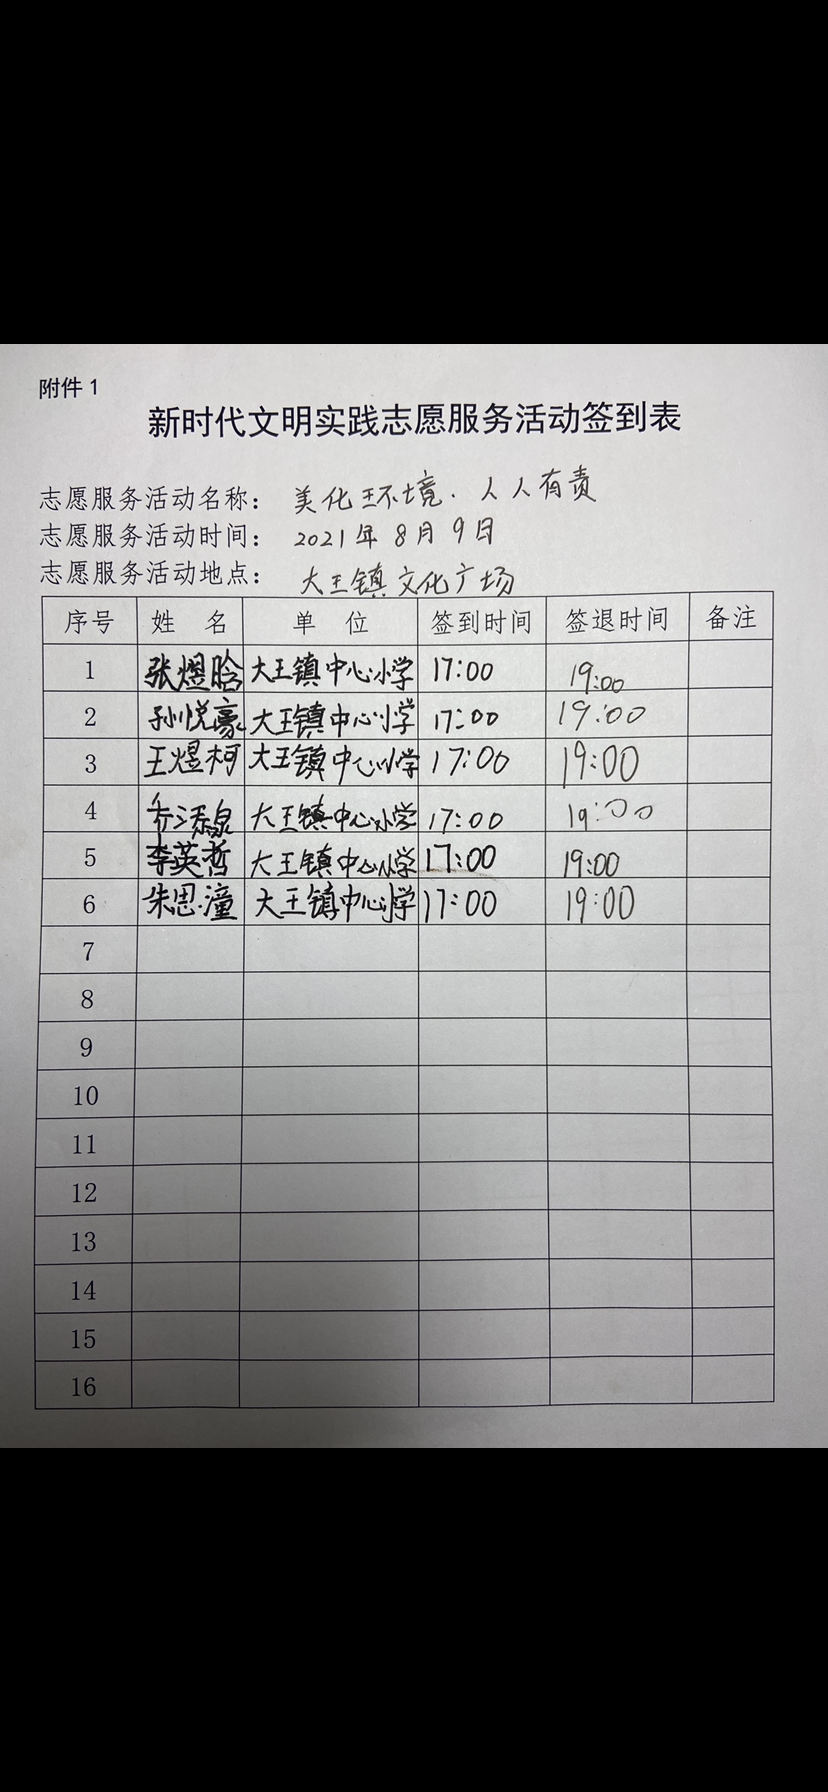 附件1
新时代文明实践志愿服务活动签到表
志愿服务活动名称： 美化环境.人人有责
志愿服务活动时间： 2021年8月9日
志愿服务活动地点： 大王镇文化广场
序号 姓 名 单 位 签到时间 签退时间 备注
1 张煜晗 大王镇中心小学 17:00 19:00
2 孙悦豪 大王镇中心小学 17:00 19:00
3 王煜柯 大王镇中心小学 17:00 19:00
4 大王镇中心小学 17:00 19:00
5 李英哲 大王镇中心小学 17:00 19:00
6 朱思潼 大王镇中心小学 17:00 19:00
7
8
9
10
11
12
13
14
15
16